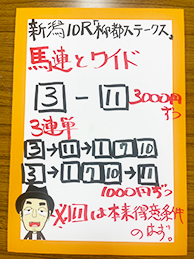 新潟10R「柳都ステークス」
馬連とワイド
3－11 3000円ずつ
3連単
3→11→1 7 10
3→1 7 10→11
1000円ずつ
今回は本来得意条件
のはず。